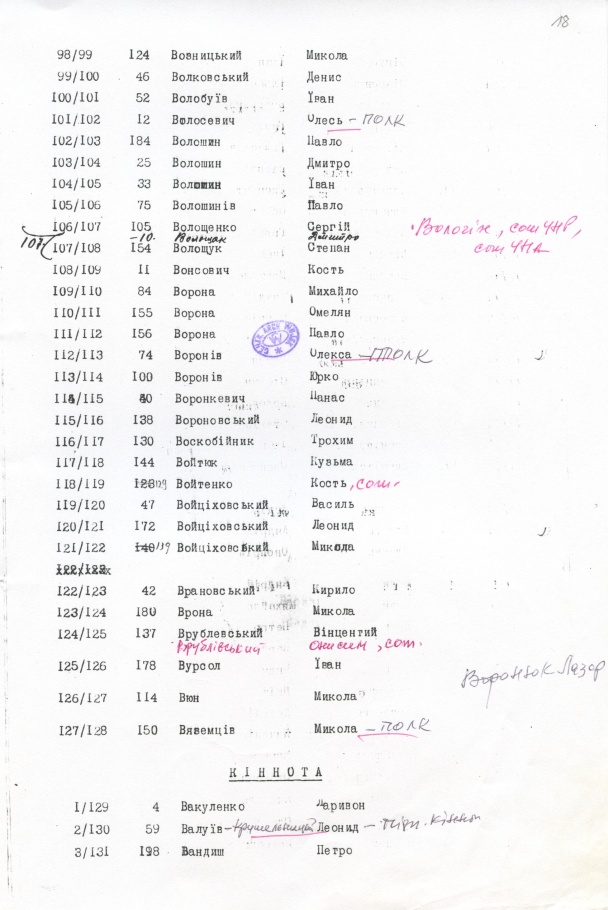 18
98/99 I24 Вовницький Микола
99/I00 46 Волковський Денис
I00/I01 52 Волобуїв Їван
I0I/I02 I2 Волосевич Олесь – ПОЛК
I02/I03 I84 Волошин Павло
I03/I04 25 Волошин Дмитро
I04/I05 33 Волошин Їван
I05/I06 75 Волошинів Павло
I06/I07 I05 Волощенко Сергій
-10- Волощак Дмитро
107/I08 I54 Волощук Степан
сот УНР,
сот УНА
I08/I09 II Вонсович Кость
I09/II0 84 Ворона Михайло
II0/III I55 Ворона Омелян
III/II2 I56 Ворона Павло
II2/II3 74 Воронів Олекса – ППОЛК
II3/II4 I00 Воронів Юрко
II4/II5 40 Воронкевич Панас
II5/II6 I38 Вороновський Леонид
II6/II7 I30 Воскобійник Трохим
II7/II8 I44 Войтюк Кузьма
II8/II9 129 Войтенко Кость, сот.
II9/I20 47 Войціховський Василь
I20/I2I I72 Войціховський Леонид
I2I/I22 139 Войціховський Микола
I22/I23 42 Врановський Кирило
I23/I24 I80 Врона Микола
I24/I25 I37 Врублевський Вінцентий
Врублівський Онисим, сот.
I25/I26 I78 Вурсол Їван
Воронюк Лазар
I26/I27 II4 Вюн Микола
I27/I28 I50 Вяземців Микола – ПОЛК
КІННОТА
I/I29 4 Вакуленко Ларивон
2/I30 59 Валуїв- Леонид –
3/I3I I98 Вандиш Петро